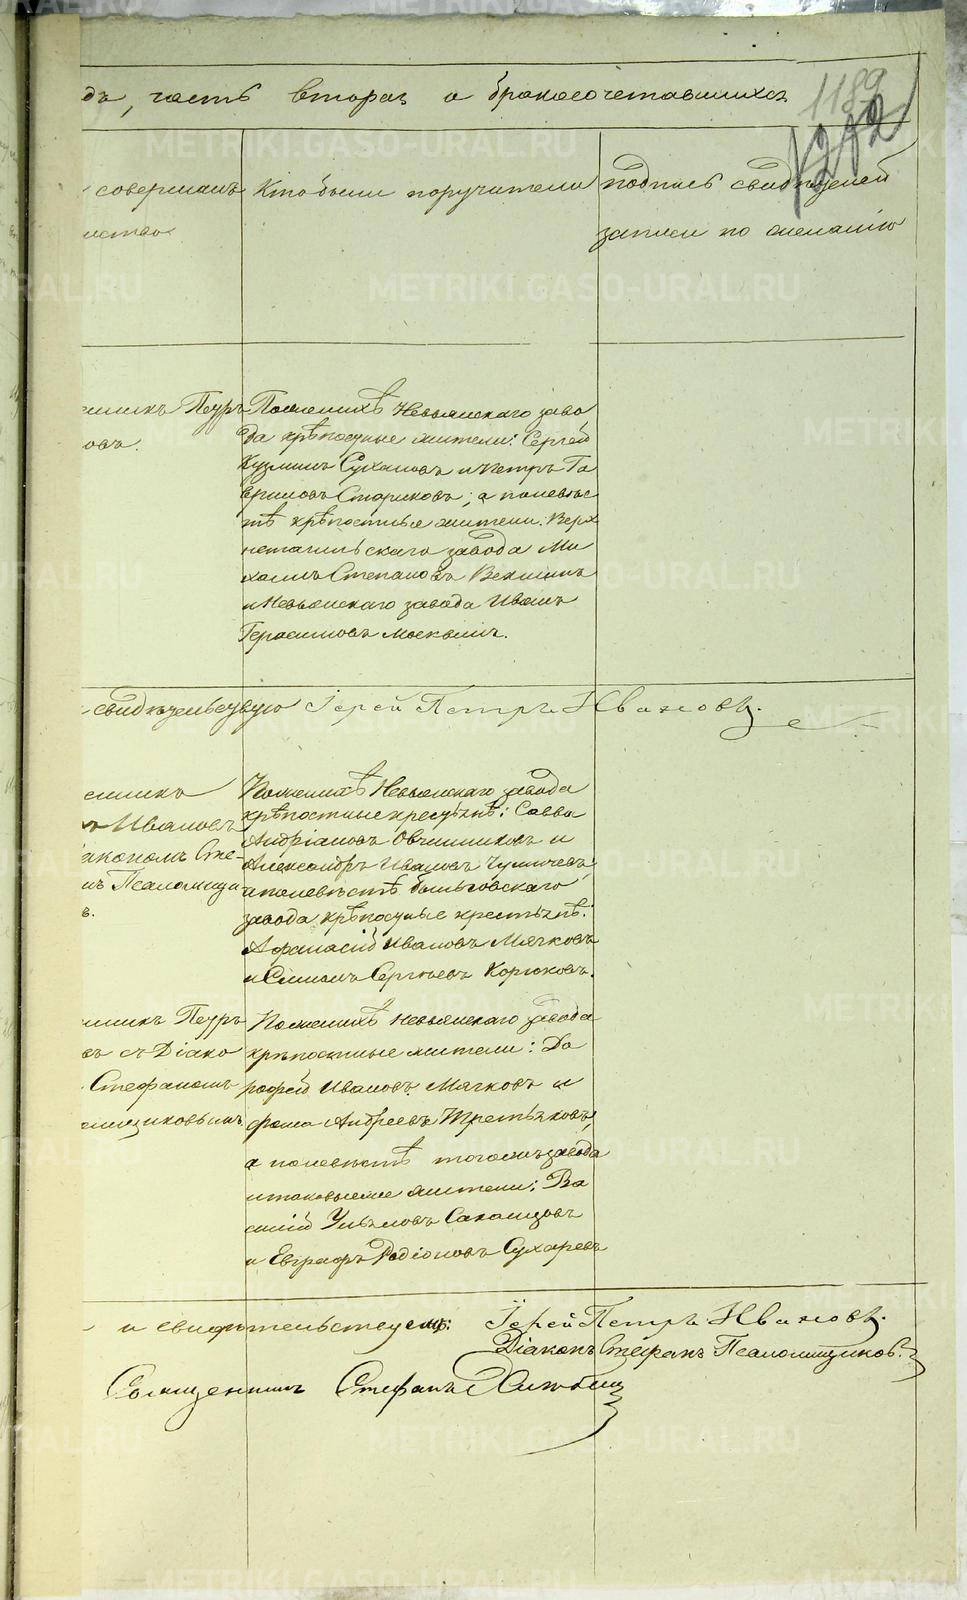 дъ, часть вторая о бракосочетавшихся
1189
1202
совершалъ
инство
Кто были поручители
подпись свидѣтелей
записи по желанію
енникъ Петръ
овъ.
По женихѣ Невьянскаго заво
да крѣпостные жители: Сергѣй
Кузминъ Сухановъ и Петръ Га
вриловъ Стариковъ; а по невѣс
тѣ крѣпостные жители: Верх
нетагильскаго завода Ми
хаилъ Степановъ Векшинъ
и Невьянскаго завода Иванъ
Герасимовъ Москвинъ.
свидѣтельствую Іерей Петръ Ивановъ.
енникъ
ъ Ивановъ
іакономъ Сте-
мъ Псаломщи
в.
По женихѣ Невьянскаго завода
крѣпостные крестьянѣ: Савва
Андріановъ Овчинниковъ и
Александръ Ивановъ Чумичевъ,
а по невѣстѣ Быньговскаго
завода крѣпостные крестьянѣ:
Афанасій Ивановъ Мячковъ
и Симонъ Сергѣевъ Корюковъ.
енникъ Петръ
въ съ Діако
Стефаномъ
омщиковымъ
По женихѣ Невьянскаго завода
крѣпостные жители: До
рофей Ивановъ Мячковъ и
Фома Андреевъ Третьяковъ,
а по невѣстѣ того же завода
и таковые же жители: Ва
силій Ульяновъ
и Евграфъ Родіоновъ Сухаревъ
и свидѣтельствуемъ: Іерей Петръ Ивановъ.
Діаконъ Стефанъ Псаломщиковъ.
Священникъ Стефанъ
METRIKI.GASO-URAL.RU